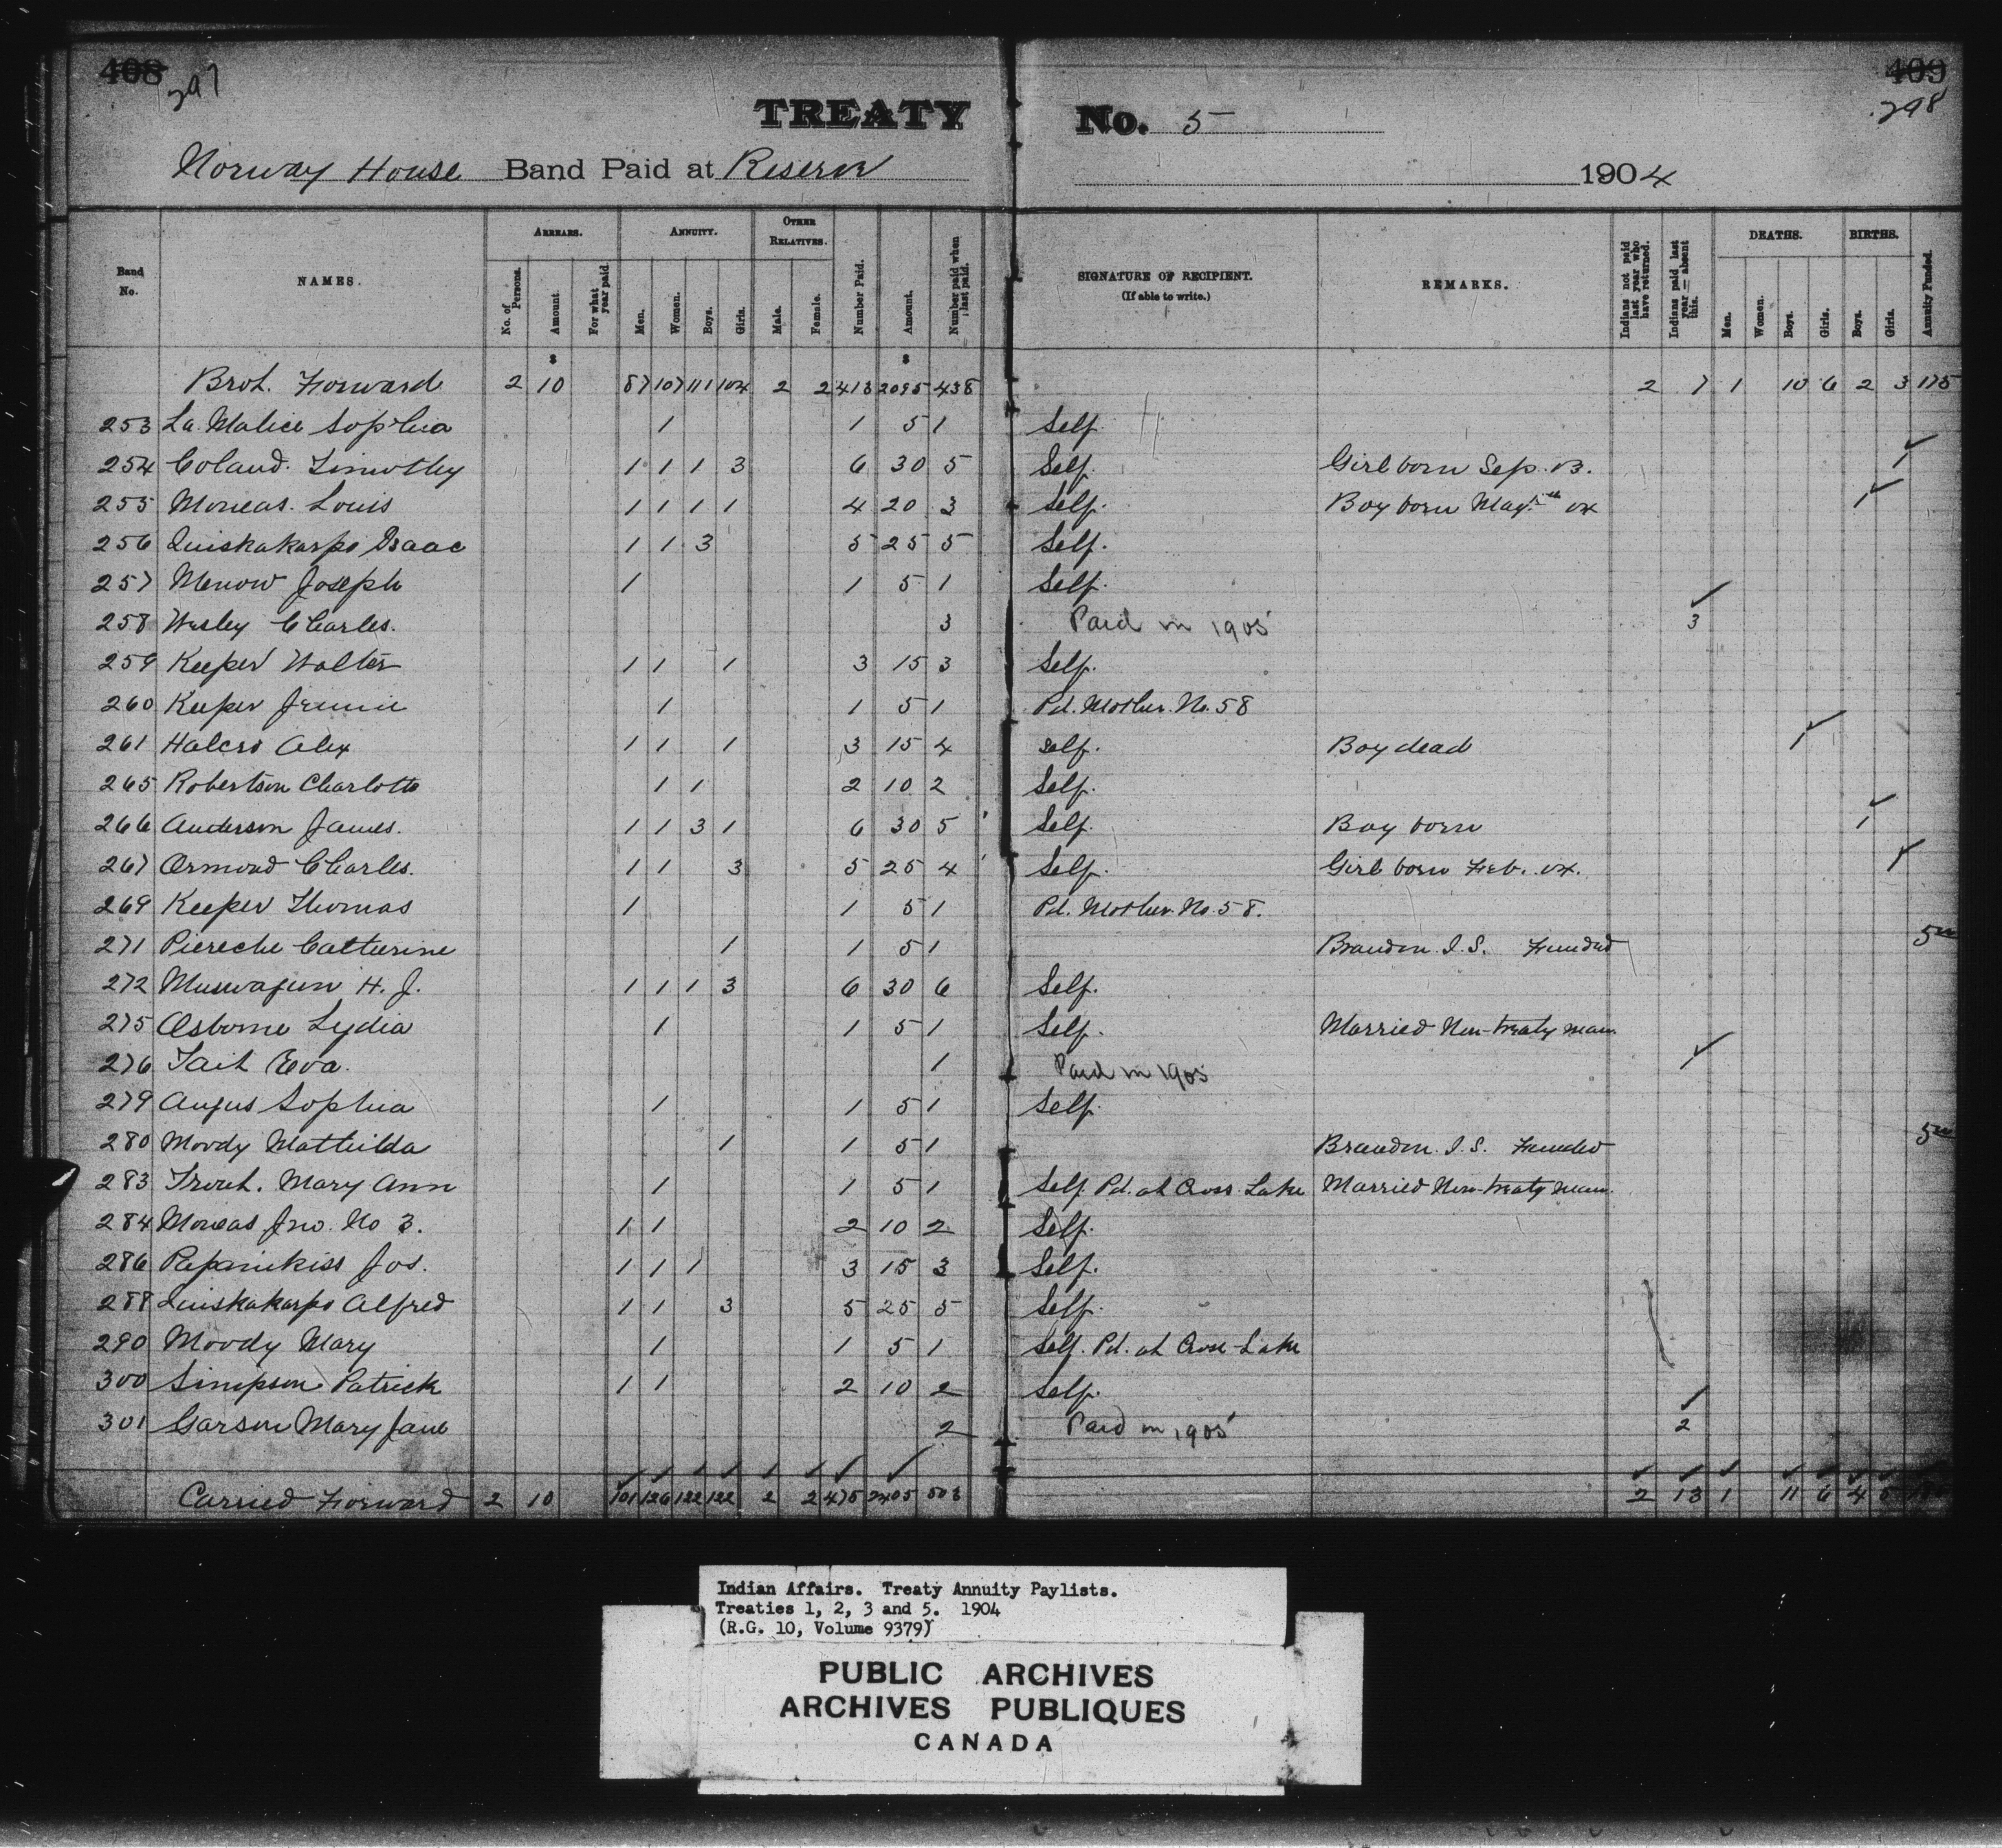 408 409
297 298
TREATY No. 5
Norway House Band Paid at Reserve 1904
Band No. NAMES. ARREARS. No. of Persons. Amount. For what year paid. ANNUITY. Men. Women. Boys. Girls. OTHER RELATIVES. Male. Female. Number Paid. Amount. Number paid when last paid. SIGNATURE OF RECIPIENT. (If able to write.) REMARKS. Indians not paid last year who have returned. Indians paid last year — absent this. DEATHS. Men. Women. Boys. Girls. BIRTHS. Boys. Girls. Annuity Funded.
$ $
Brot. Forward 2 10 87 107 111 104 2 2 413 2095 438 2 7 1 10 6 2 3 175
253 La Malice Sophia 1 1 5 1 Self.
254 Coland. Timothy 1 1 1 3 6 30 5 Self. Girl born Sep. 03. 1
255 Moneas. Louis 1 1 1 1 4 20 3 Self. Boy born May 04 1
256 Quiskakarpo Isaac 1 1 3 5 25 5 Self.
257 Menow Joseph 1 1 5 1 Self.
258 Wesley Charles. 3 Paid in 1905 3
259 Keeper Walter 1 1 1 3 15 3 Self.
260 Keeper Jennie 1 1 5 1 Pd. Mother. No. 58
261 Halcro Alex 1 1 1 3 15 4 Self. Boy dead 1
265 Robertson Charlotte 1 1 2 10 2 Self.
266 Anderson James. 1 1 3 1 6 30 5 Self. Boy born 1
267 Ormond Charles. 1 1 3 5 25 4 Self. Girl born Feb. 04. 1
269 Keeper Thomas 1 1 5 1 Pd. Mother. No. 58.
271 Piereche Catherine 1 1 5 1 Brandon I.S. Funded 5 00
272 Muswagun H. J. 1 1 1 3 6 30 6 Self.
275 Osborne Lydia 1 1 5 1 Self. Married Non-treaty man
276 Tait Eva. 1 Paid in 1905 1
279 Angus Sophia 1 1 5 1 Self.
280 Moody Mathilda 1 1 5 1 Brandon. I.S. Funded 5 00
283 Trout. Mary Ann 1 1 5 1 Self. Pd. at Cross Lake Married Non-treaty man.
284 Moneas Jno. No 3. 1 1 2 10 2 Self.
286 Papanikiss Jos. 1 1 1 3 15 3 Self.
288 Quiskakarpo Alfred 1 1 3 5 25 5 Self.
290 Moody Mary 1 1 5 1 Self. Pd. at Cross Lake
300 Simpson Patrick 1 1 2 10 2 Self.
301 Garson Mary Jane 2 Paid in 1905 2
Carried Forward 2 10 101 126 122 122 2 2 475 2405 503 2 13 1 11 6 4 5
Indian Affairs. Treaty Annuity Paylists.
Treaties 1, 2, 3 and 5. 1904
(R.G. 10, Volume 9379)
PUBLIC ARCHIVES
ARCHIVES PUBLIQUES
CANADA